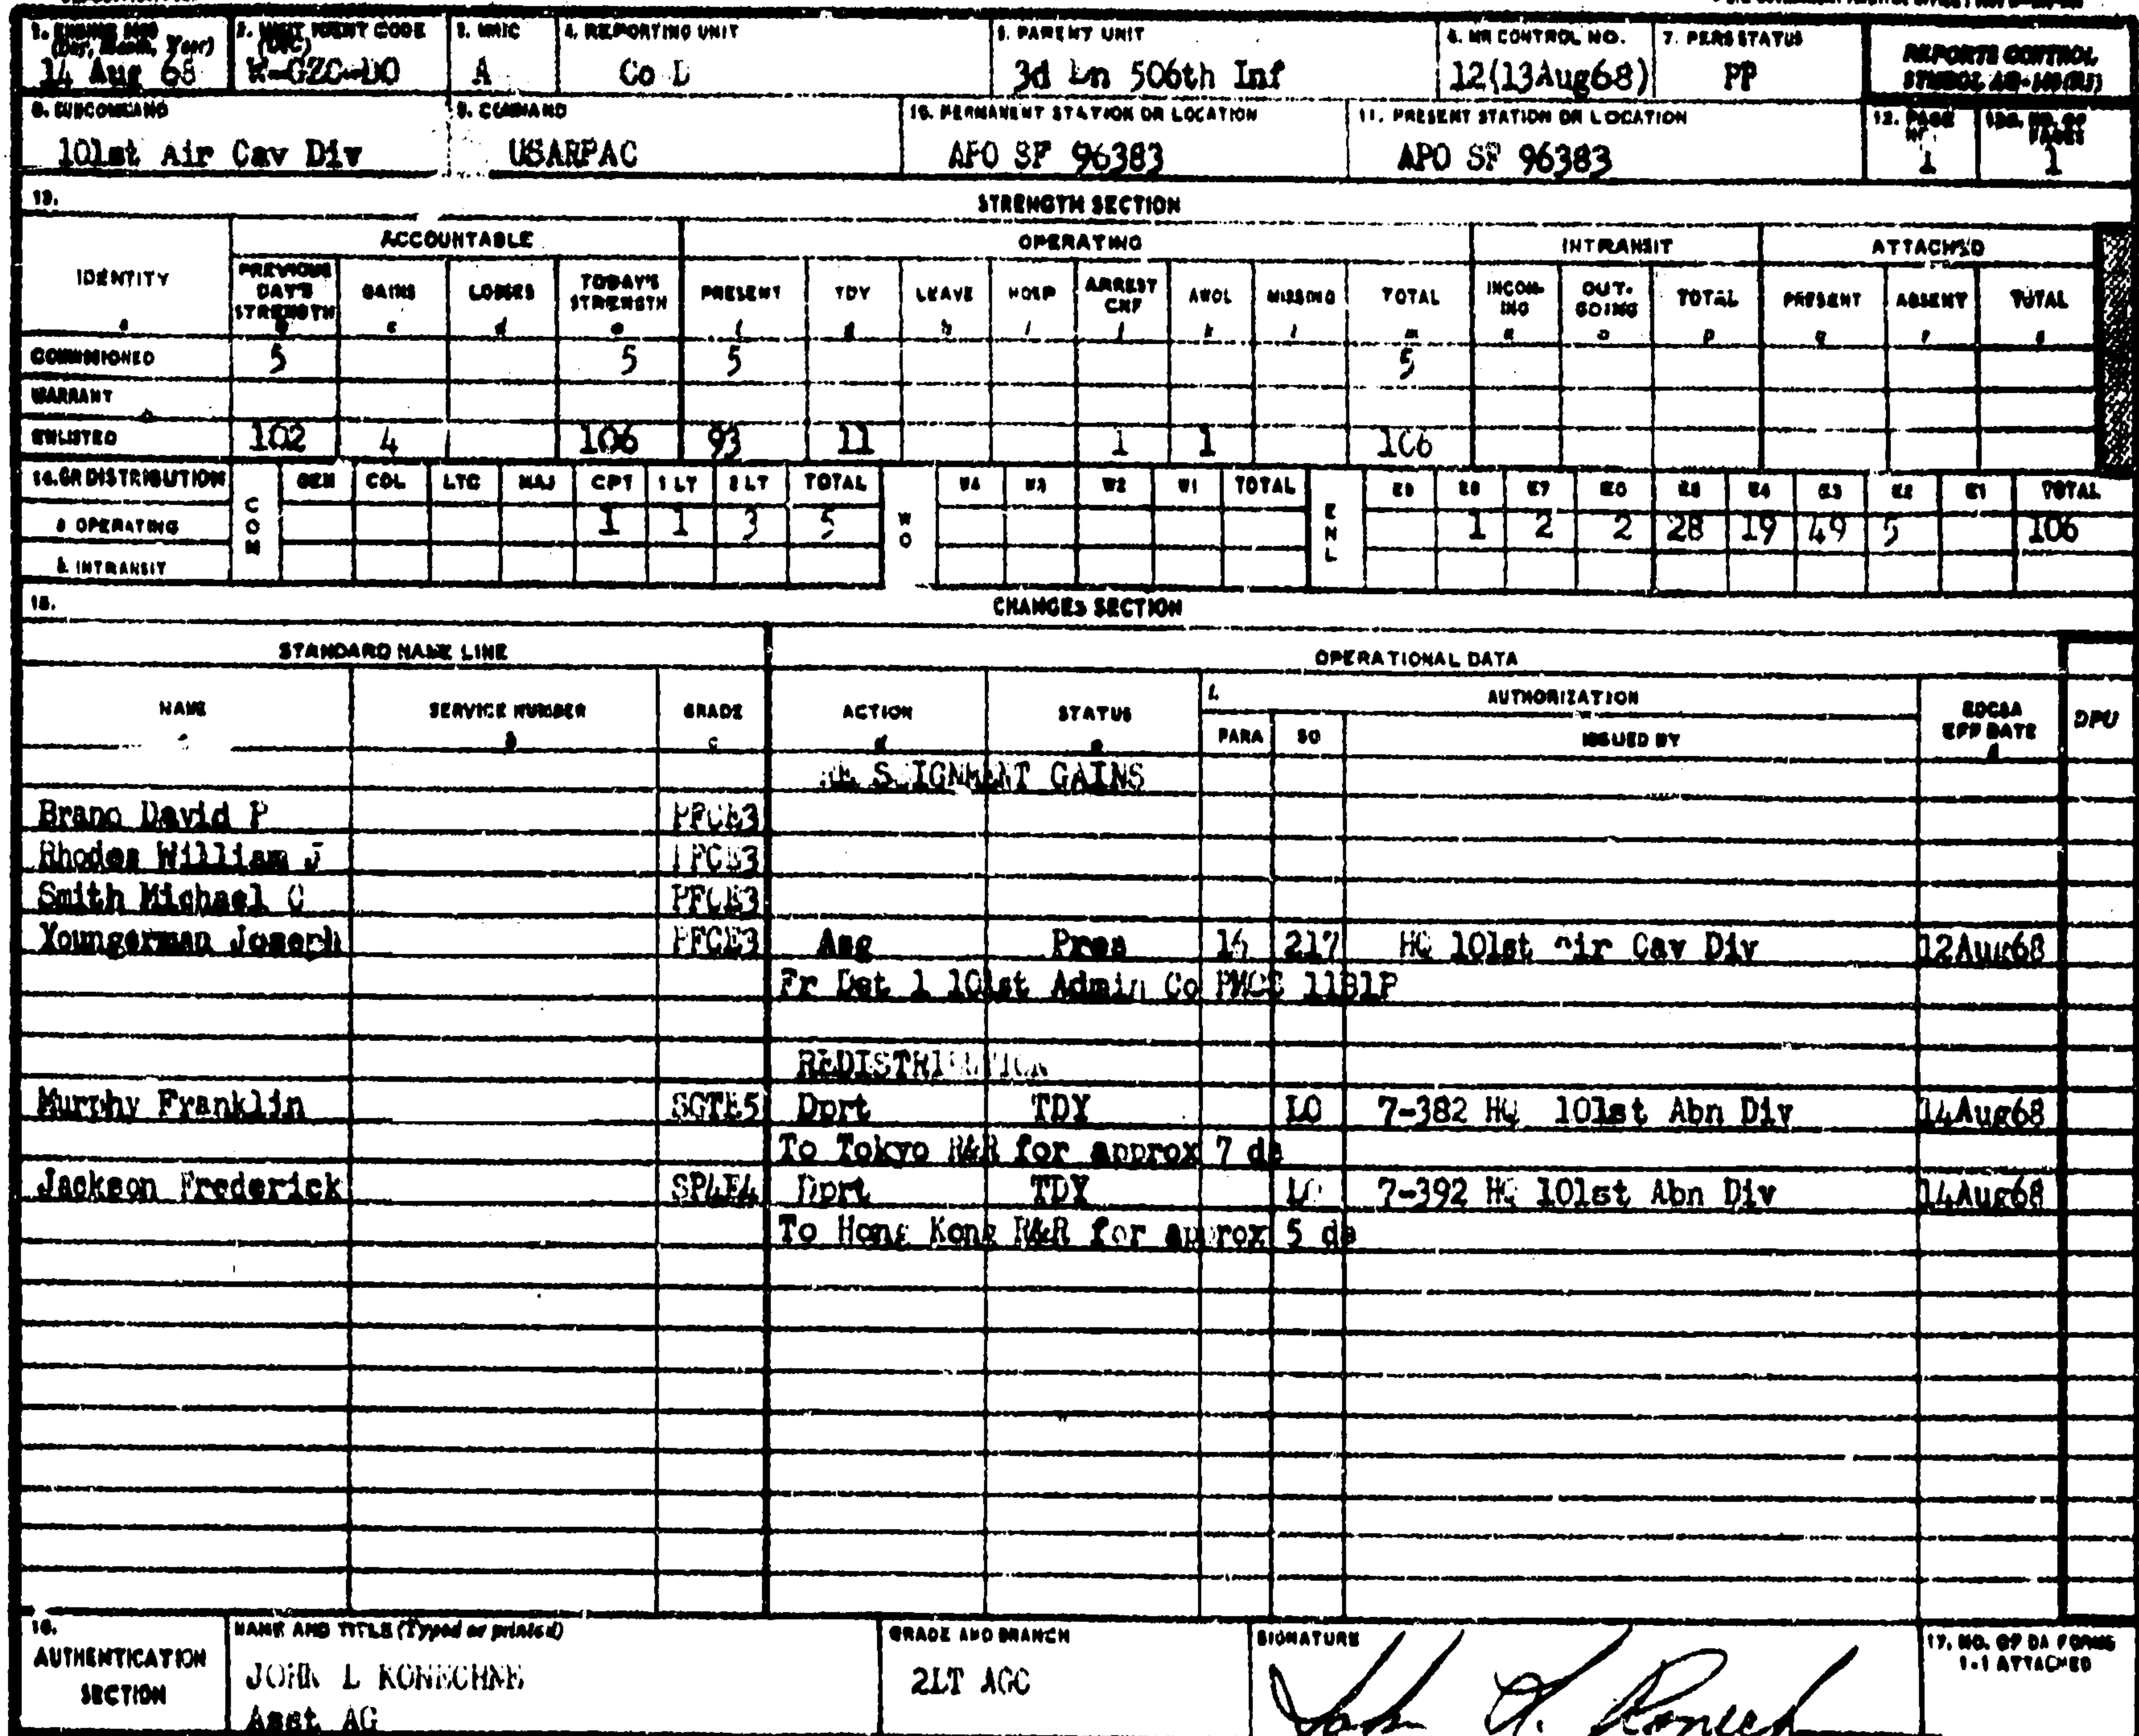 1. ENDING 2400 (Day, Month, Year)
14 Aug 68
2. UNIT IDENT CODE (UIC)
W-GZC-DO
3. MRIC
A
4. REPORTING UNIT
Co D
5. PARENT UNIT
3d Bn 506th Inf
6. MR CONTROL NO.
12(13Aug68)
7. PERS STATUS
PP
REPORTS CONTROL
SYMBOL
8. SUBCOMMAND
101st Air Cav Div
9. COMMAND
USARPAC
10. PERMANENT STATION OR LOCATION
APO SF 96383
11. PRESENT STATION OR LOCATION
APO SF 96383
12. PAGE NO.
1
12a. NO. OF PAGES
1
13. STRENGTH SECTION
IDENTITY ACCOUNTABLE OPERATING INTRANSIT ATTACHED
PREVIOUS DAY'S STRENGTH GAINS LOSSES TODAY'S STRENGTH PRESENT TDY LEAVE HOSP ARREST CNF AWOL MISSING TOTAL INCOMING OUTGOING TOTAL PRESENT ABSENT TOTAL
a b c d e f g h i j k l m n o p q r s
COMMISSIONED 5 5 5 5
WARRANT
ENLISTED 102 4 106 93 11 1 1 106
14. GR DISTRIBUTION COM GEN COL LTC MAJ CPT 1 LT 2 LT TOTAL WO W4 W3 W2 W1 TOTAL ENL E9 E8 E7 E6 E5 E4 E3 E2 E1 TOTAL
a OPERATING 1 1 3 5 1 2 2 28 19 49 5 106
b. INTRANSIT
15. CHANGES SECTION
STANDARD NAME LINE OPERATIONAL DATA
NAME SERVICE NUMBER GRADE ACTION STATUS f. AUTHORIZATION EDCSA EFF DATE DPU
a b c d e PARA SO ISSUED BY g
GAINS
Brano David P PFCE3
Rhodes William J PFCE3
Smith Michael C PFCE3
Youngerman Joseph PFCE3 Asg Pres 14 217 HQ 101st Air Cav Div 12Aug68
Fr Det 1 101st Admin Co PMOS 11B1P
REDISTRIBUTION
Murphy Franklin SGTE5 Dprt TDY LO 7-382 HQ 101st Abn Div 14Aug68
To Tokyo R&R for approx 7 da
Jackson Frederick SP4E4 Dprt TDY LO 7-392 HQ 101st Abn Div 14Aug68
To Hong Kong R&R for approx 5 da
16. AUTHENTICATION SECTION
NAME AND TITLE (Typed or printed)
JOHN L KONECHNE
Asst AG
GRADE AND BRANCH
2LT AGC
SIGNATURE
17. NO. OF DA FORMS 1-1 ATTACHED